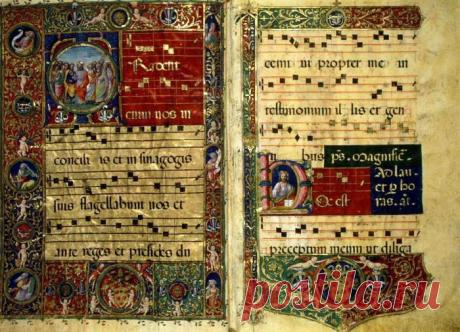 Tradent
enim uos in
conciliis et in sinagogis
suis flagellabunt uos et
ante reges et presides du
cemini propter me in
testimonium illis et gen
tibus ps. Magnific̄.
Ad lau
et p ho
ras. añ.
Hoc est
preceptum meum ut diliga
postila.ru